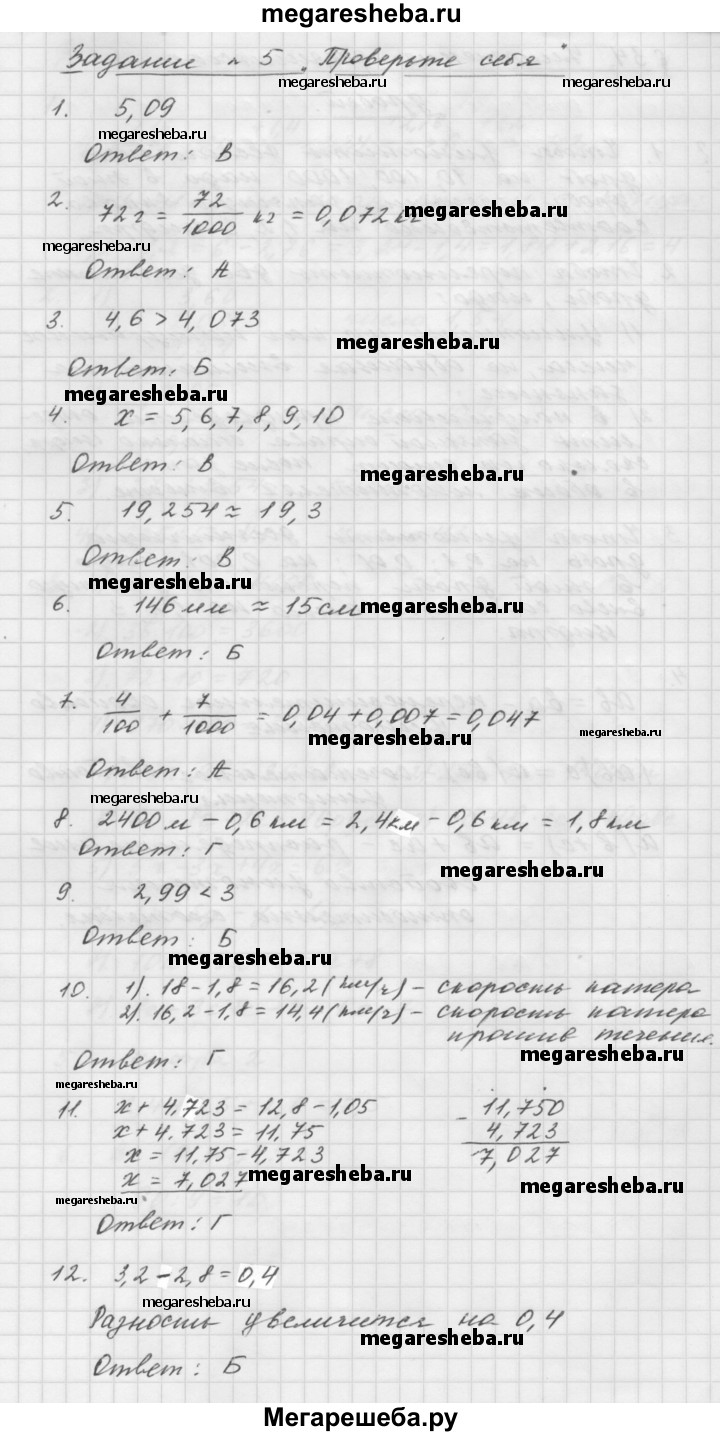 megaresheba.ru
Задание № 5 "Проверьте себя"
megaresheba.ru megaresheba.ru
1. 5,09
megaresheba.ru
Ответ: В
2. 72 г = 72/1000 кг = 0,072 кг
megaresheba.ru
megaresheba.ru
Ответ: А
3. 4,6 > 4,073
megaresheba.ru
Ответ: Б
megaresheba.ru
4. x = 5, 6, 7, 8, 9, 10
Ответ: В
megaresheba.ru
5. 19,254 ≈ 19,3
Ответ: В
megaresheba.ru
6. 146 мм ≈ 15 см
megaresheba.ru
Ответ: Б
7. 4/100 + 7/1000 = 0,04 + 0,007 = 0,047
megaresheba.ru
Ответ: А
megaresheba.ru
8. 2400 м - 0,6 км = 2,4 км - 0,6 км = 1,8 км
Ответ: Г
megaresheba.ru
9. 2,99 < 3
Ответ: Б
megaresheba.ru
10. 1). 18 - 1,8 = 16,2 (км/ч) - скорость катера
2). 16,2 - 1,8 = 14,4 (км/ч) - скорость катера
против течения.
megaresheba.ru
Ответ: Г
megaresheba.ru
11. x + 4.723 = 12,8 - 1,05
x + 4.723 = 11,75
x = 11,75 - 4,723
x = 7,027
- 11,750
4,723
7,027
megaresheba.ru
megaresheba.ru
megaresheba.ru
Ответ: Г
12. 3,2 - 2,8 = 0,4
megaresheba.ru
Разность увеличится на 0,4
megaresheba.ru
Ответ: Б
Мегарешеба.ру